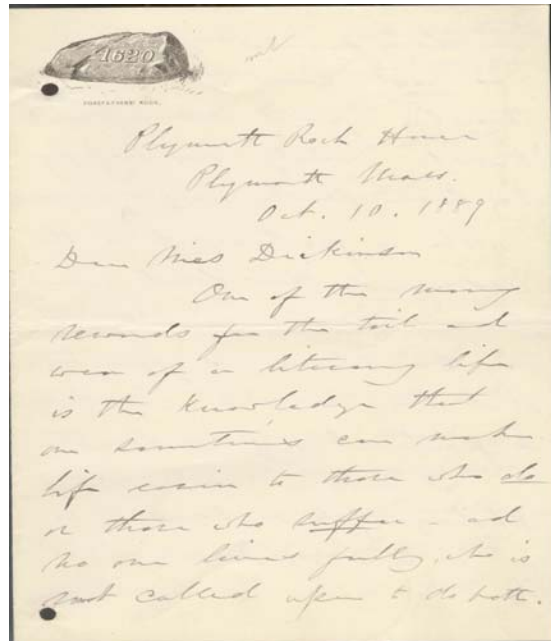 1620
FOREFATHERS ROCK.
Plymouth Rock House
Plymouth Mass.
Oct. 10. 1889
Dear Miss Dickinson
One of the many
rewards for the toil and
wear of a literary life
is the knowledge that
one sometimes can make
life easier to those who do
or those who suffer - and
no one lives fully, who is
not called upon to do both.